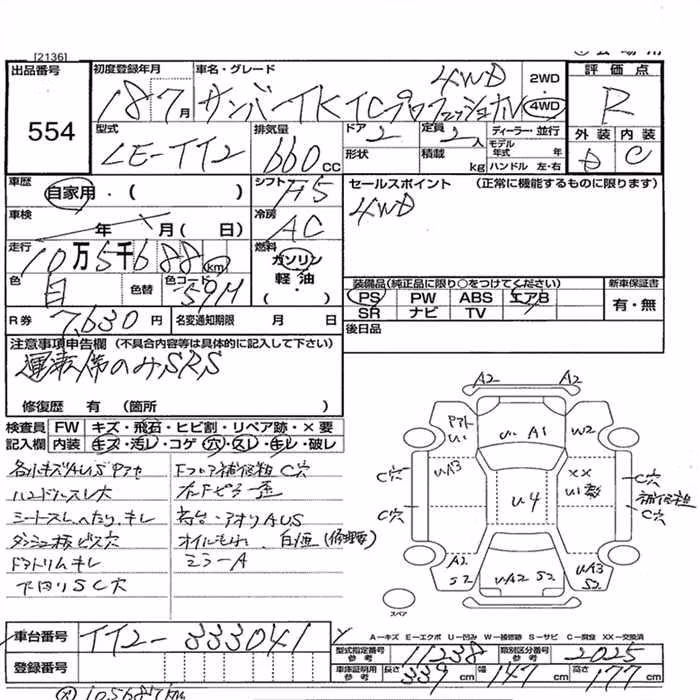 [2136]
出品番号 初度登録年月 車名・グレード 2WD 評価点
554
18 7月 サンバーTK TCプロフェッショナル 4WD 4WD R
型式 排気量 ドア 定員 ディーラー・並行 外装 内装
LE-TT2 660 CC 2 2人 モデル年式 年 D C
形状 積載 kg ハンドル 左・右
車歴 自家用・( ) シフト F5 セールスポイント (正常に機能するものに限ります)
4WD
車検 年 月( 日) 冷房 AC
走行 10万5千688 km 燃料 ガソリン 軽油 ( ・ )
色 白 色替 色コード 59M
装備品(純正品に限り○をつけてください) 新車保証書
PS PW ABS エアB 有・無
SR ナビ TV
R券 7,630円 名変通知期限 月 日 後日品
注意事項申告欄 (不具合内容等は具体的に記入して下さい)
運転席のみSRS
修復歴 有 (箇所 )
検査員 FW キズ・飛石・ヒビ割・リペア跡・×要
記入欄 内装 キズ・汚レ・コゲ・穴・スレ・キレ・破レ
各小キズAUSPアカ Fフロア補修粗 C穴
ハンドルスレ大
シートスレ、へたり、キレ 荷台・アオリAUS
ダッシュ板ビス穴 オイルもれ、
ドアトリムキレ ミラーA
下回りSC穴
A2 A2
U1 U・A1 W2
UA3 XX
C穴 U4 U1 C穴
補修粗
C穴 C穴
A2 S2 UA2 S2 UA3 S2
スペア
A－キズ E－エクボ U－凹み W－補修跡 S－サビ C－腐食 XX－交換済
車台番号 TT2-333041
型式指定番号 参考 11238 類別区分番号 参考 2025
登録番号
車庫証明用 参考 長さ 339cm 幅 147cm 高さ 177cm
105687km